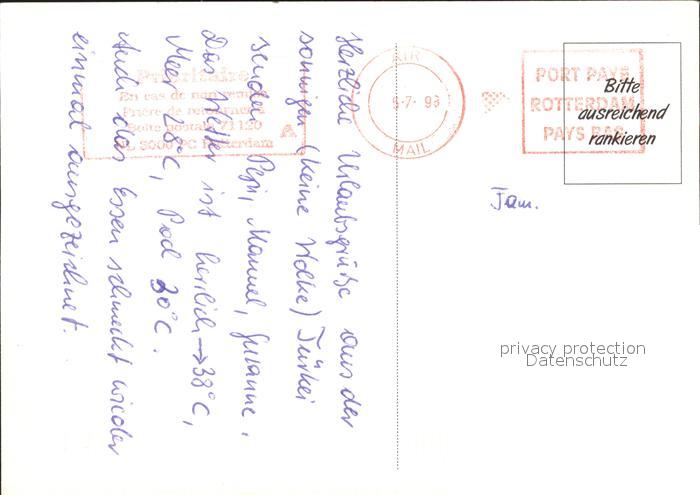 Herzliche Urlaubsgrüße aus der
sonnigen (keine Wolke) Türkei
senden Pepi, Manuel, Susanne.
Das Wetter ist herrlich → 38°C,
Meer 28°C, Pool 30°C.
Auch das Essen schmeckt wieder
einmal ausgezeichnet.
Prioritaire
En cas de non remise
Prière de retourner
Boîte postale 71120
NL 3000 PC Rotterdam
A
AIR
9-7-98
MAIL
PORT PAYE
ROTTERDAM
PAYS BAS
Bitte
ausreichend
frankieren
Fam.
privacy protection
Datenschutz